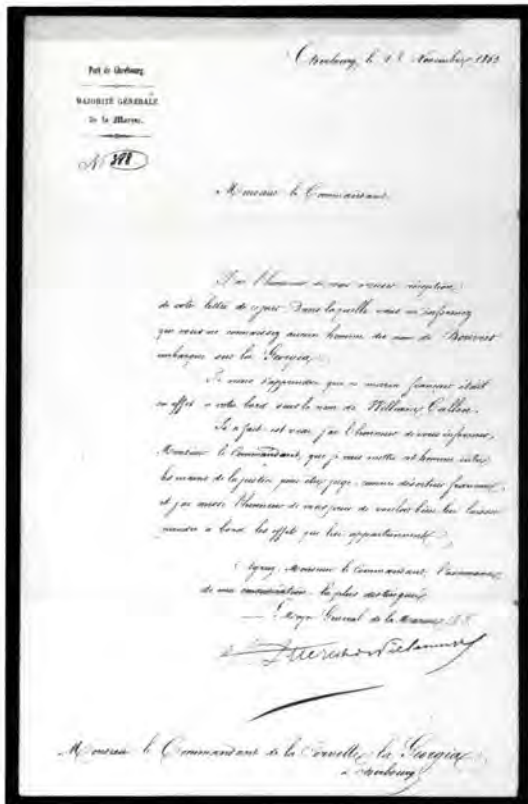 Cherbourg, le 18 Novembre 1863
Port de Cherbourg.
MAJORITÉ GÉNÉRALE
de la Marine.
N° 398
Monsieur le Commandant,
J'ai l'honneur de vous accuser réception
de votre lettre de ce jour dans laquelle vous m'informez
que vous ne connaissez aucun homme du nom de
embarqué sur la Georgia.
Je viens d'apprendre que ce marin français était
en effet à votre bord sous le nom de William
Le fait est vrai, j'ai l'honneur de vous informer,
Monsieur le Commandant, que je vais mettre cet homme entre
les mains de la justice pour être jugé comme déserteur français
et j'ai aussi l'honneur de vous prier de vouloir bien lui laisser
prendre à bord les effets qui lui appartiennent.
Agréez, Monsieur le Commandant, l'assurance
de ma considération la plus distinguée.
Le Major Général de la Marine
Monsieur le Commandant de la Corvette la Georgia
à Cherbourg